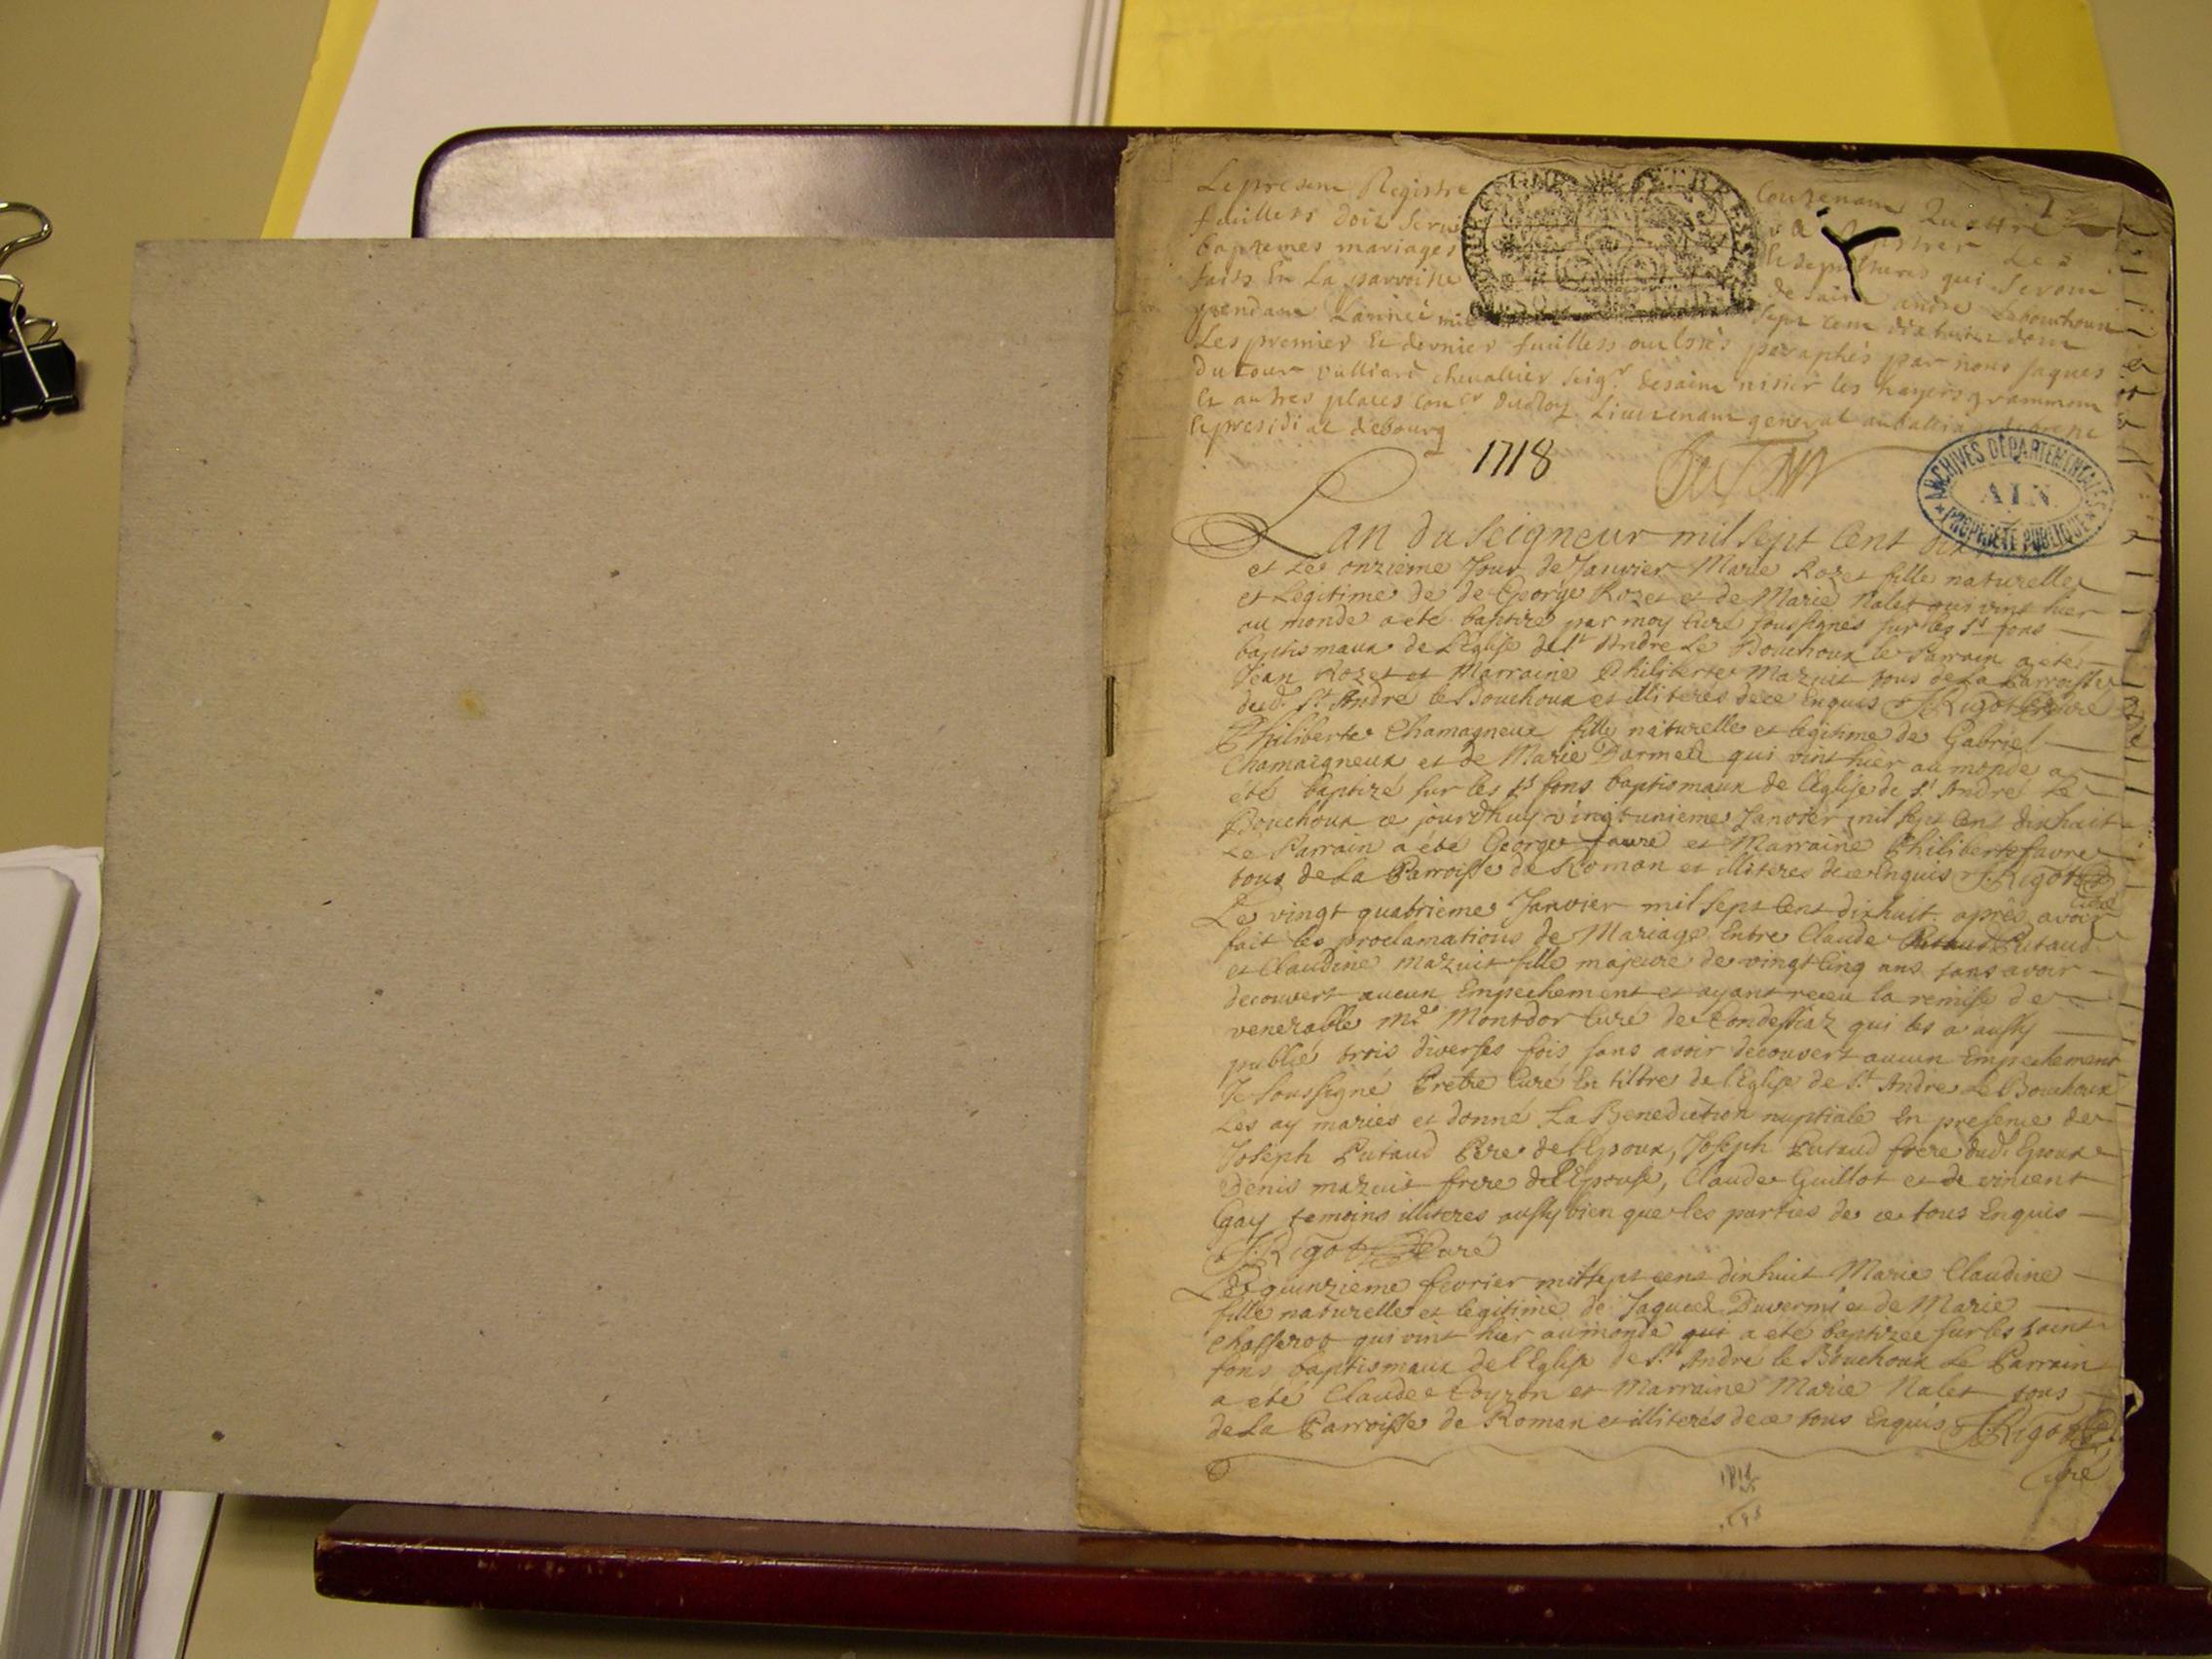 Le present Registre Contenant Quattre
feuillets doit servir a Registrer Les
baptemes mariages et sepultures qui seront
faits En La parroisse de saint andré Lebouchoux
pendant L'année mil sept cent dixhuit dont
Les premier Et dernier feuillets ont estés paraphés par nous Jaques
Dutour Vulliard chevallier seigr. desaint nisier les
Et autres places Concer. du Roy Lieutenant general au balliage
presidial debourg
1718
DuTour
ARCHIVES DÉPARTEMENTALES
AIN
PROPRIÉTÉ PUBLIQUE
Lan du Seigneur mil sept Cent dix
et Le onzieme Jour de Janvier Marie Rozet fille naturelle
et Legitime de de George Rozet et de Marie Nalet qui vint hier
au monde a eté baptizé par moy Curé soussigné sur les Sts fons
baptismaux de L'Eglise de St André Le Bouchoux le Parrain a eté
Jean Rozet et Marraine Philiberte Mazuit tous de La Parroisse
dud. St André le Bouchoux et illiteres de ce Enquis J. Rigot Curé
Philiberte Chamagneux fille naturelle et legitime de Gabriel
Chamagneux et de Marie Darmed qui vint hier au monde a
eté baptizé sur les Sts fons baptismaux de l'Eglise de St André Le
Bouchoux ce jourdhuy vingtunieme Janvier mil sept Cent dixhuit
Le Parrain a été George favre et Marraine Philiberte favre
tous de La Parroisse de Roman et illiteres de ce Enquis J. Rigot
Curé
Le vingt quatrieme Janvier mil sept Cent dixhuit apres avoir
fait les proclamations de Mariage Entre Claude Putaud Putaud
et Claudine Mazuit fille majeure de vingt Cinq ans sans avoir
decouvert aucun Empechement et ayant receu la remise de
venerable Mre Montdor Curé de Condessiaz qui les a aussy
publié trois diverses fois sans avoir decouvert aucun Empechement
Je soussigné Pretre Curé En tiltre de l'Eglise de St André Le Bouchoux
Les ay mariés et donné La Benediction nuptiale En presence de
Joseph Putaud Pere de l'Epoux, Joseph Putaud frere dud. Epoux
Denis mazuit frere de l'Epouse, Claude Guillot et de vincent
Gay temoins illiteres aussy bien que les parties de ce tous Enquis
J. Rigot Curé
Le quinzieme fevrier mil sept cent dixhuit Marie Claudine
fille naturelle et legitime de Jaques Duvernis et de Marie
Chasserot qui vint hier au monde qui a eté baptizée sur les saint
fons baptismaux de l'Eglise de St André le Bouchoux Le Parrain
a eté Claude Coyzon et Marraine Marie Nalet tous
de La Parroisse de Roman et illiterés de ce tous Enquis J. Rigot
Curé